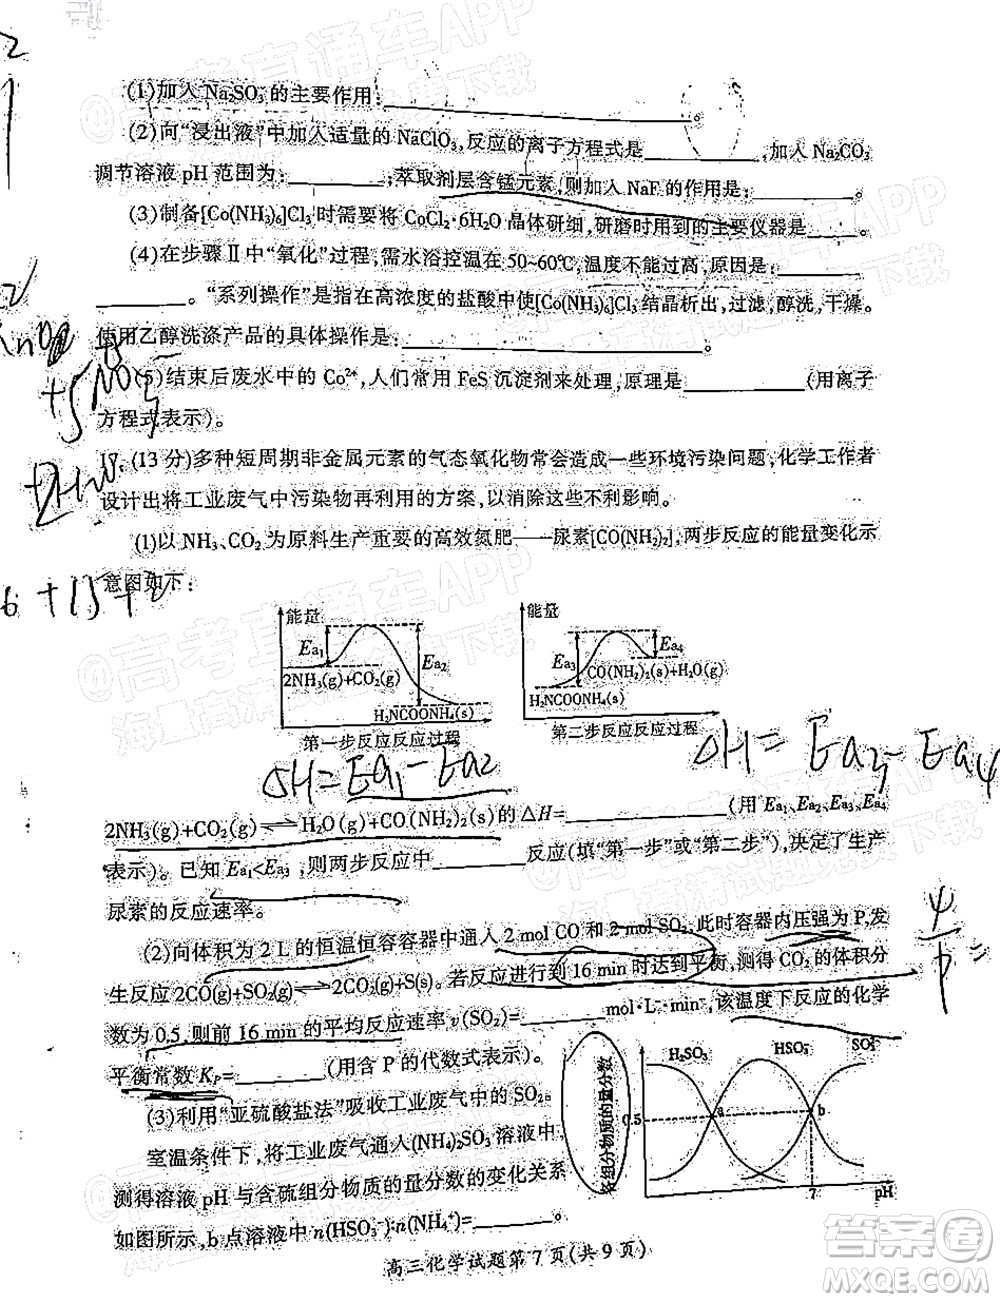 (1)加入 Na₂SO₃ 的主要作用: 。
(2)向“浸出液”中加入适量的 NaClO₃,反应的离子方程式是 ,加入 Na₂CO₃
调节溶液 pH 范围为: ;萃取剂层含锰元素,则加入 NaF 的作用是: 。
(3)制备[Co(NH₃)₆]Cl₃ 时需要将 CoCl₂·6H₂O 晶体研细,研磨时用到的主要仪器是 。
(4)在步骤Ⅱ中“氧化”过程,需水浴控温在 50~60℃,温度不能过高,原因是:
。“系列操作”是指在高浓度的盐酸中使[Co(NH₃)₆]Cl₃ 结晶析出,过滤,醇洗,干燥。
使用乙醇洗涤产品的具体操作是: 。
(5)结束后废水中的 Co²⁺,人们常用 FeS 沉淀剂来处理,原理是 (用离子
方程式表示)。
+5NO₃⁻
17. (13 分)多种短周期非金属元素的气态氧化物常会造成一些环境污染问题,化学工作者
设计出将工业废气中污染物再利用的方案,以消除这些不利影响。
(1)以 NH₃、CO₂ 为原料生产重要的高效氮肥——尿素[CO(NH₂)₂],两步反应的能量变化示
意图如下:
6+15+2
能量
Ea₁
Ea₂
2NH₃(g)+CO₂(g)
H₂NCOONH₄(s)
第一步反应反应过程
能量
Ea₃
Ea₄
CO(NH₂)₂(s)+H₂O(g)
H₂NCOONH₄(s)
第二步反应反应过程
ΔH=Ea₁-Ea₂
ΔH=Ea₃-Ea₄
2NH₃(g)+CO₂(g)⇌H₂O(g)+CO(NH₂)₂(s)的△H= (用 Ea₁、Ea₂、Ea₃、Ea₄
表示)。已知 Ea₁<Ea₃,则两步反应中 反应(填“第一步”或“第二步”),决定了生产
尿素的反应速率。
(2)向体积为 2 L 的恒温恒容容器中通入 2 mol CO 和 2 mol SO₂,此时容器内压强为 P,发
生反应 2CO(g)+SO₂(g)⇌2CO₂(g)+S(s)。若反应进行到 16 min 时达到平衡,测得 CO₂ 的体积分
数为 0.5,则前 16 min 的平均反应速率 v(SO₂)= mol·L⁻¹·min⁻¹,该温度下反应的化学
平衡常数 Kₚ= (用含 P 的代数式表示)。
(3)利用“亚硫酸盐法”吸收工业废气中的 SO₂。
室温条件下,将工业废气通入(NH₄)₂SO₃ 溶液中,
测得溶液 pH 与含硫组分物质的量分数的变化关系
如图所示,b 点溶液中 n(HSO₃⁻):n(NH₄⁺)= 。
各组分物质的量分数
H₂SO₃
HSO₃⁻
SO₃²⁻
0.5
a
b
7
pH
高三化学试题第 7 页(共 9 页)
@高考直通车APP
海量高清试题免费下载
@高考直通车APP
海量高清试题免费下载
答案圈
MXQE.COM